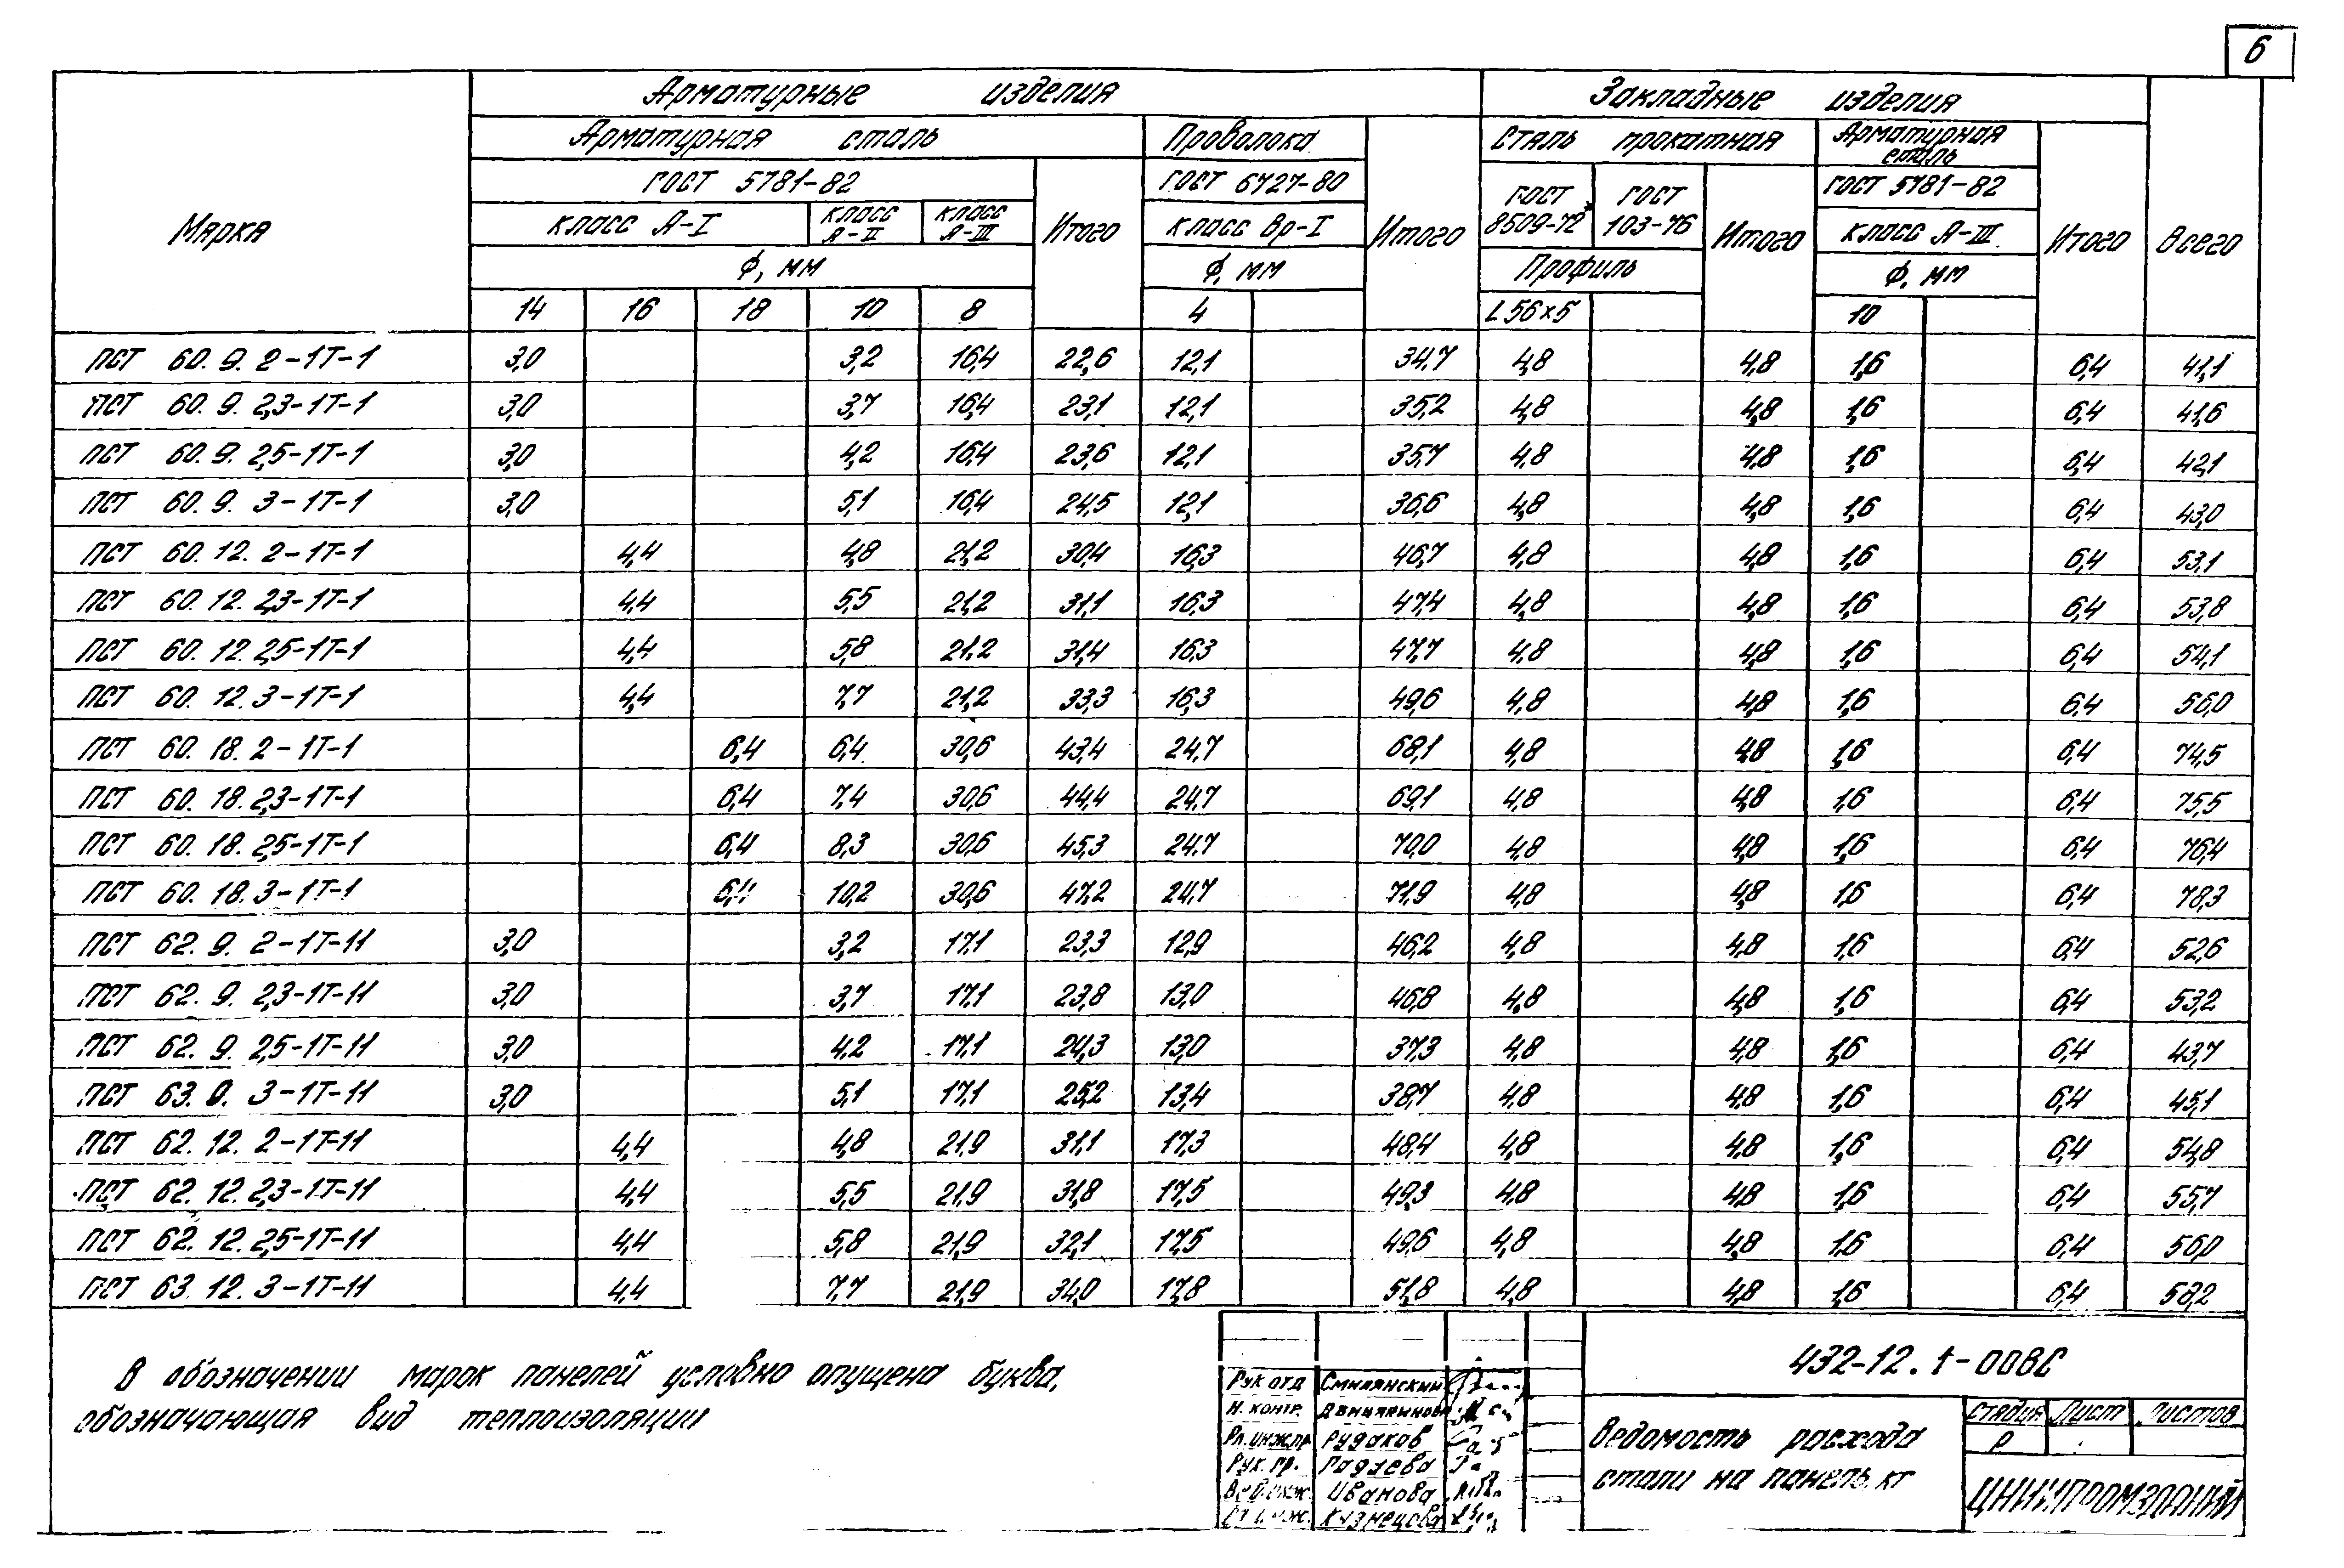 6
Марка
Арматурные изделия
Закладные изделия
Всего
Арматурная сталь
Проволока
Итого
Сталь прокатная
Арматурная сталь
Итого
ГОСТ 5781-82
Итого
ГОСТ 6727-80
ГОСТ 8509-72*
ГОСТ 103-76
Итого
ГОСТ 5781-82
класс А-I
класс А-II
класс А-III
класс Вр-I
класс А-III
ф, мм
ф, мм
Профиль
ф, мм
14 16 18 10 8 4 L56×5 10
ПСТ 60.9.2-1Т-1 3,0 3,2 16,4 22,6 12,1 34,7 4,8 4,8 1,6 6,4 41,1
ПСТ 60.9.2,3-1Т-1 3,0 3,7 16,4 23,1 12,1 35,2 4,8 4,8 1,6 6,4 41,6
ПСТ 60.9.2,5-1Т-1 3,0 4,2 16,4 23,6 12,1 35,7 4,8 4,8 1,6 6,4 42,1
ПСТ 60.9.3-1Т-1 3,0 5,1 16,4 24,5 12,1 36,6 4,8 4,8 1,6 6,4 43,0
ПСТ 60.12.2-1Т-1 4,4 4,8 21,2 30,4 16,3 46,7 4,8 4,8 1,6 6,4 53,1
ПСТ 60.12.2,3-1Т-1 4,4 5,5 21,2 31,1 16,3 47,4 4,8 4,8 1,6 6,4 53,8
ПСТ 60.12.2,5-1Т-1 4,4 5,8 21,2 31,4 16,3 47,7 4,8 4,8 1,6 6,4 54,1
ПСТ 60.12.3-1Т-1 4,4 7,7 21,2 33,3 16,3 49,6 4,8 4,8 1,6 6,4 56,0
ПСТ 60.18.2-1Т-1 6,4 6,4 30,6 43,4 24,7 68,1 4,8 4,8 1,6 6,4 74,5
ПСТ 60.18.2,3-1Т-1 6,4 7,4 30,6 44,4 24,7 69,1 4,8 4,8 1,6 6,4 75,5
ПСТ 60.18.2,5-1Т-1 6,4 8,3 30,6 45,3 24,7 70,0 4,8 4,8 1,6 6,4 76,4
ПСТ 60.18.3-1Т-1 6,4 10,2 30,6 47,2 24,7 71,9 4,8 4,8 1,6 6,4 78,3
ПСТ 62.9.2-1Т-11 3,0 3,2 17,1 23,3 12,9 46,2 4,8 4,8 1,6 6,4 52,6
ПСТ 62.9.2,3-1Т-11 3,0 3,7 17,1 23,8 13,0 46,8 4,8 4,8 1,6 6,4 53,2
ПСТ 62.9.2,5-1Т-11 3,0 4,2 17,1 24,3 13,0 37,3 4,8 4,8 1,6 6,4 43,7
ПСТ 63.9.3-1Т-11 3,0 5,1 17,1 25,2 13,4 38,7 4,8 4,8 1,6 6,4 45,1
ПСТ 62.12.2-1Т-11 4,4 4,8 21,9 31,1 17,3 48,4 4,8 4,8 1,6 6,4 54,8
ПСТ 62.12.2,3-1Т-11 4,4 5,5 21,9 31,8 17,5 49,3 4,8 4,8 1,6 6,4 55,7
ПСТ 62.12.2,5-1Т-11 4,4 5,8 21,9 32,1 17,5 49,6 4,8 4,8 1,6 6,4 56,0
ПСТ 63.12.3-1Т-11 4,4 7,7 21,9 34,0 17,8 51,8 4,8 4,8 1,6 6,4 58,2
В обозначении марок панелей условно опущена буква,
обозначающая вид теплоизоляции
Рук отд Смилянский
Н. контр.
Гл.инж.пр Рудаков
Рук. гр. Гадаева
Вед.инж. Иванова
Ст.инж. Кузнецова
432-12.1-00ВС
Ведомость расхода
стали на панель, кг
Стадия Лист Листов
Р
ЦНИИПРОМЗДАНИЙ